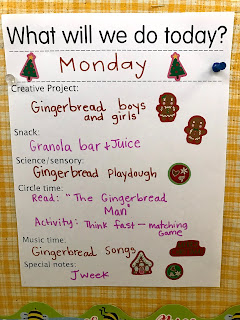 What will we do today?
Monday
Creative Project:
Gingerbread boys
and girls
Snack:
Granola bar + Juice
Science/sensory:
Gingerbread Playdough
Circle time:
Read: "The Gingerbread
Man"
Activity: Think fast - matching
Game
Music time:
Gingerbread Songs
Special notes:
J week